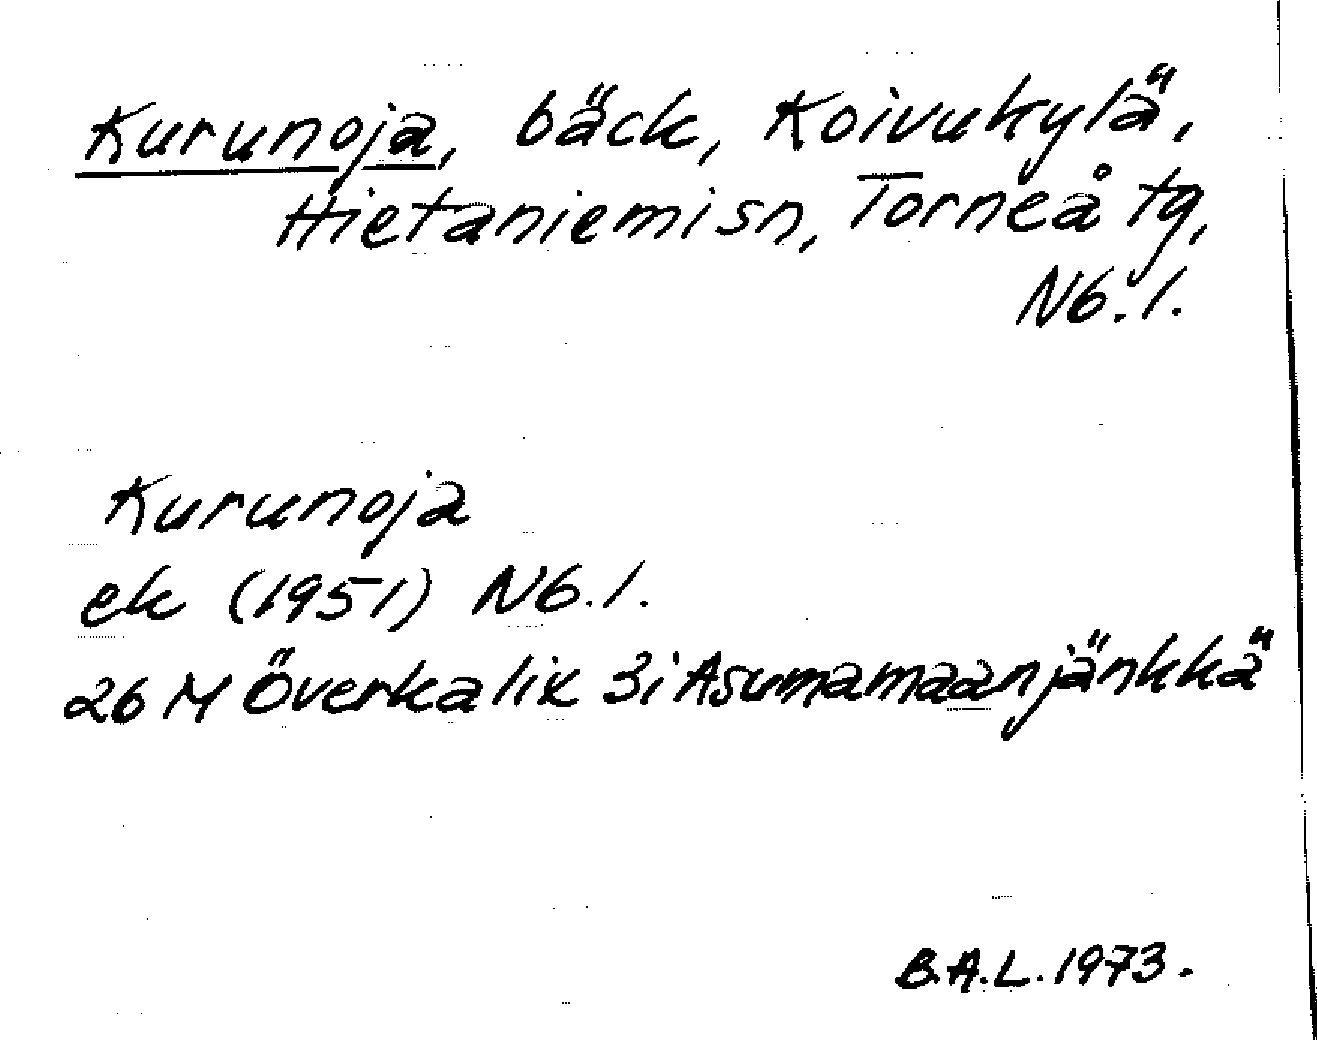 Kurunoja, bäck, Koivukylä,
Hietaniemi sn, Torneå tg,
Nb. l.
Kurunoja
ek (1951) Nb. l.
26 M Överkalix 3i Asumamaanjänkkä
B.A.L. 1973.